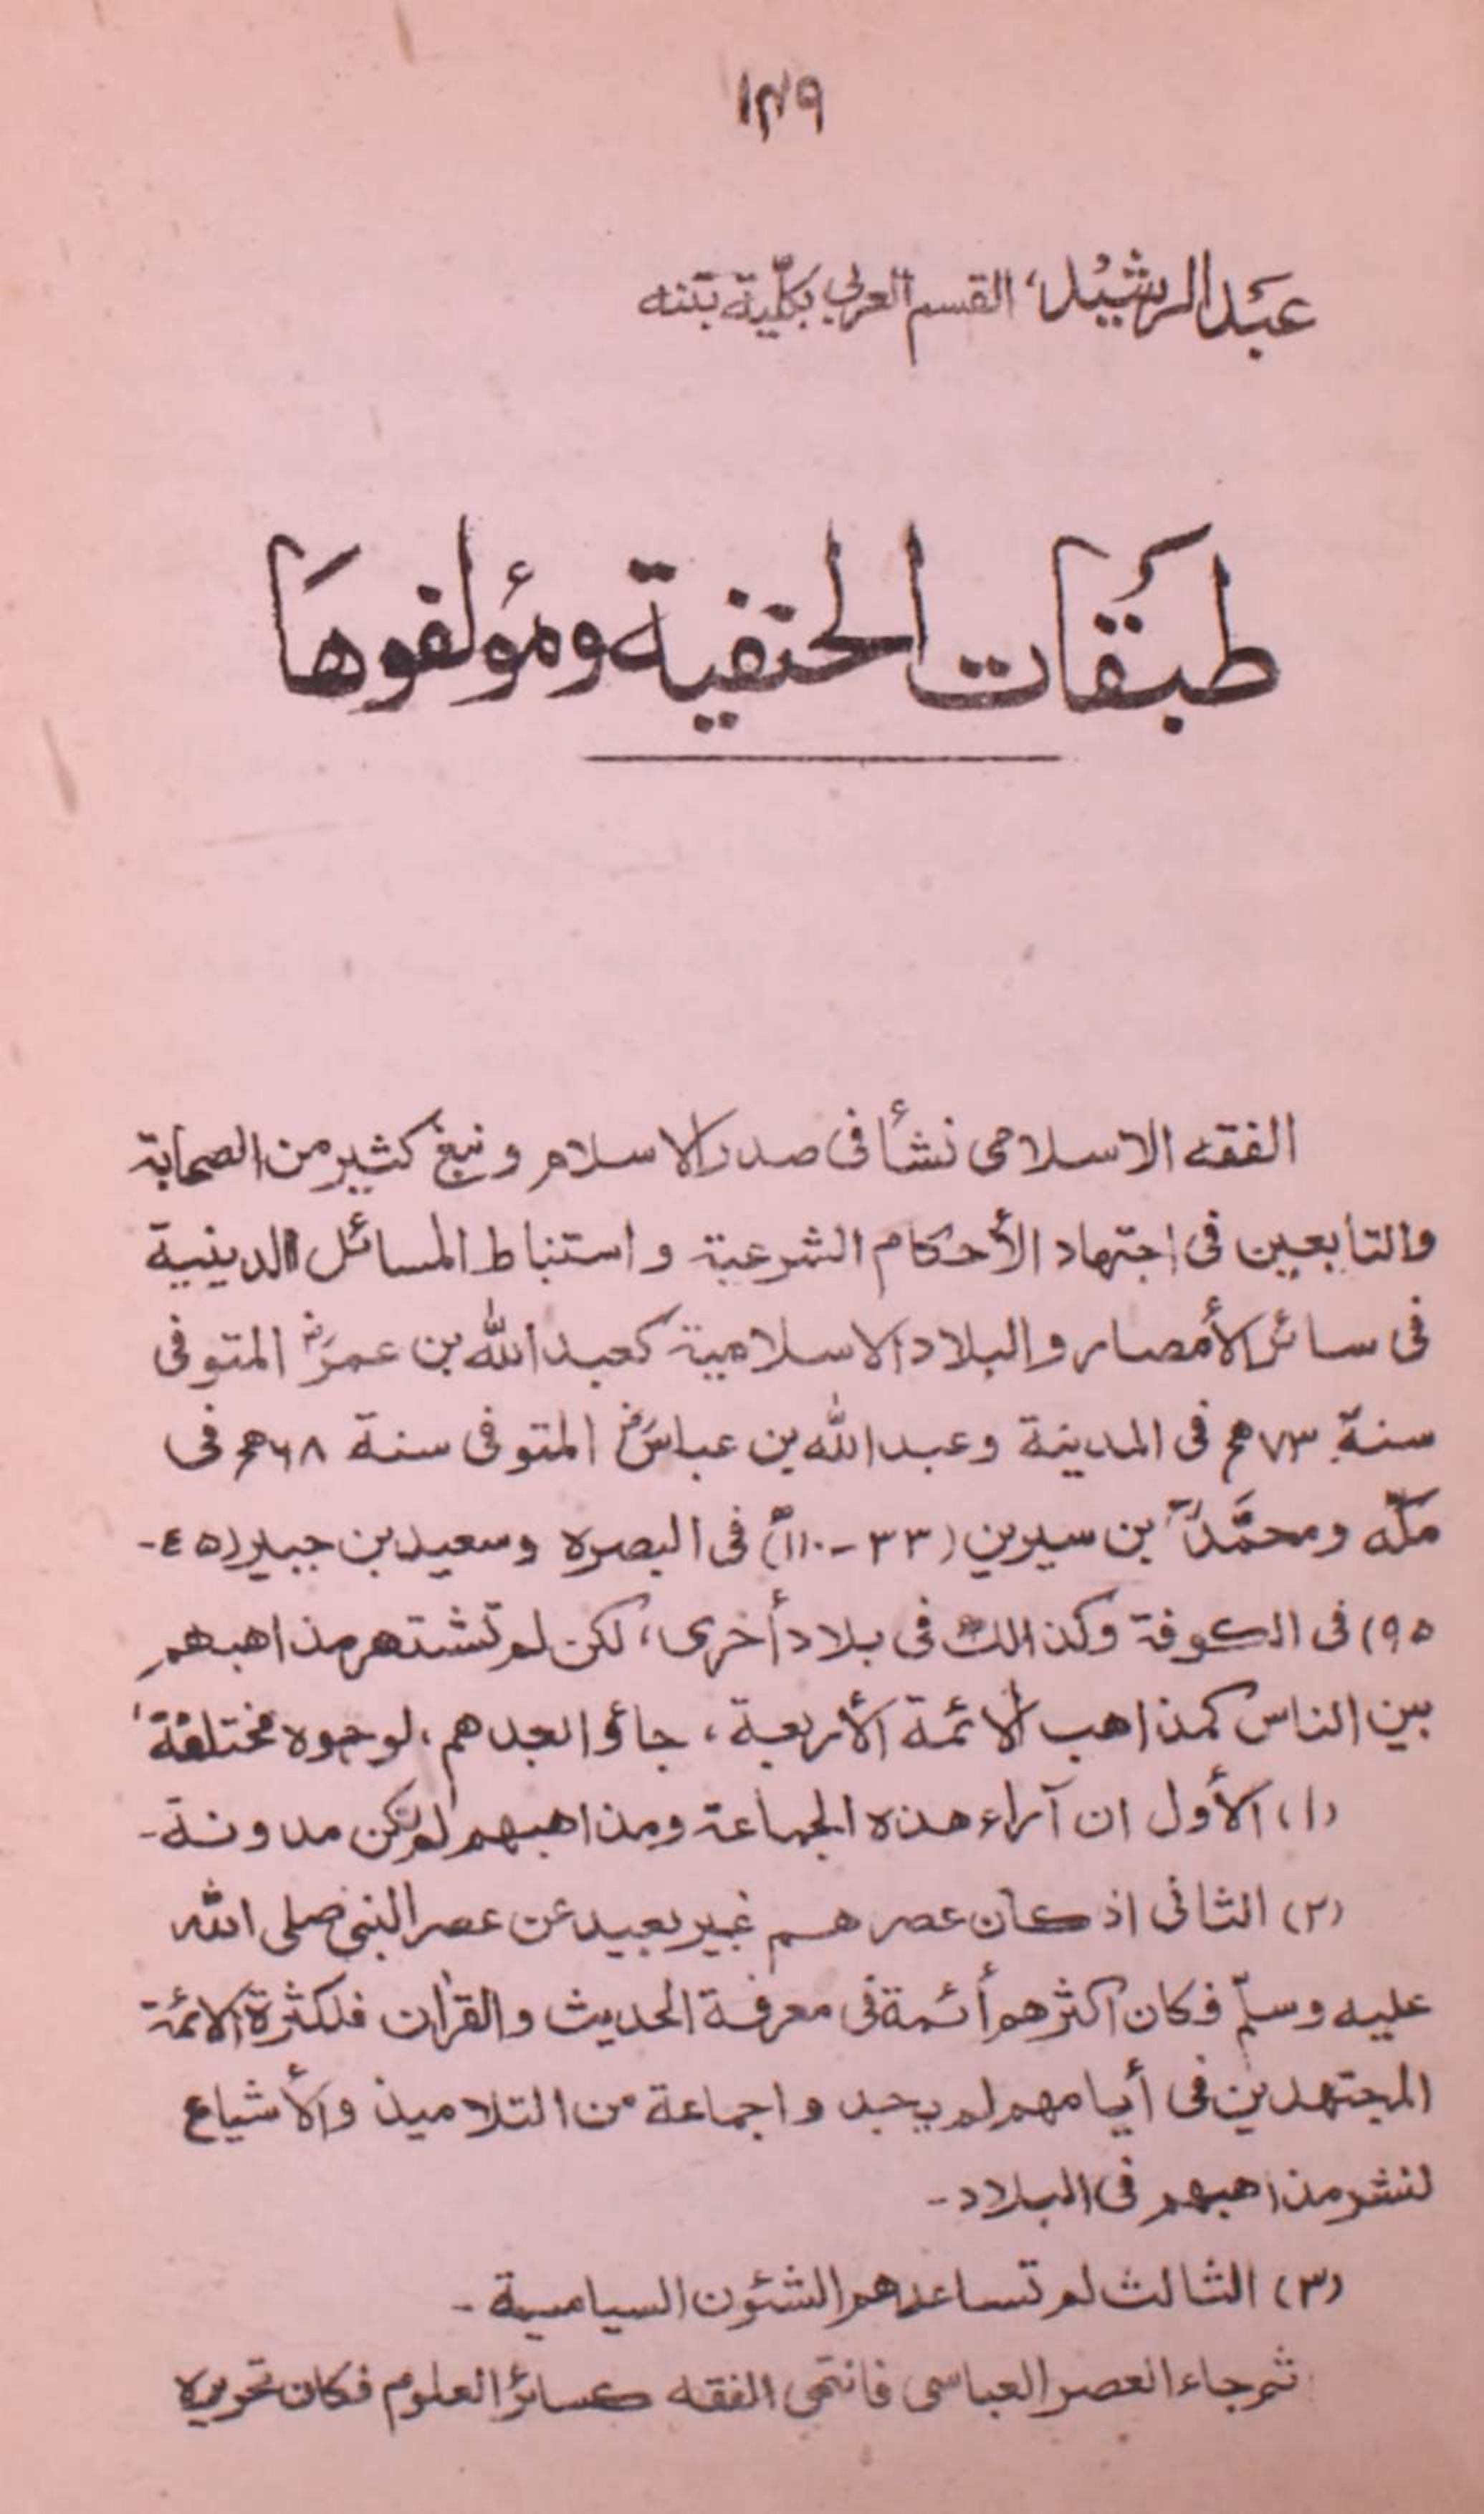 ١٣٩
عبد الرشيد، القسم العربي بكلّية بتنه
طبقات الحنفية ومؤلفوها
الفقه الاسلامى نشأ فى صدر الاسلام و نبغ كثير من الصحابة
والتابعين فى اجتهاد الأحكام الشرعية و استنباط المسائل الدينية
فى سائر الأمصار و البلاد الاسلامية كعبد الله بن عمرؓ المتوفى
سنة ٧٣هج فى المدينة و عبد الله بن عباسؓ المتوفى سنة ٦٨هج فى
مكّه و محمّد بن سيرين (٣٣-١١٠) فى البصره وسعيد بن جبير (٤٥-
٩٥) فى الكوفة وكذالك فى بلاد أخرى، لكن لم تشتهر مذاهبهم
بين الناس كمذاهب الأئمة الأربعة، جاؤا بعدهم، لوجوه مختلفة،
(١) الأول ان آراء هذه الجماعة ومذاهبهم لم تكن مدونة-
(٢) الثانى اذ كان عصر هم غير بعيد عن عصر النبى صلى الله
عليه وسلّم فكان اكثرهم أئمة فى معرفة الحديث والقرأن فلكثرة الائمة
المجتهدين فى أيامهم لم يجد واجماعة من التلاميذ والأشياع
لنشر مذاهبهم فى البلاد-
(٣) الثالث لم تساعدهم الشئون السياسية-
ثم جاء العصر العباسى فانتهى الفقه كسائر العلوم فكان تحريره